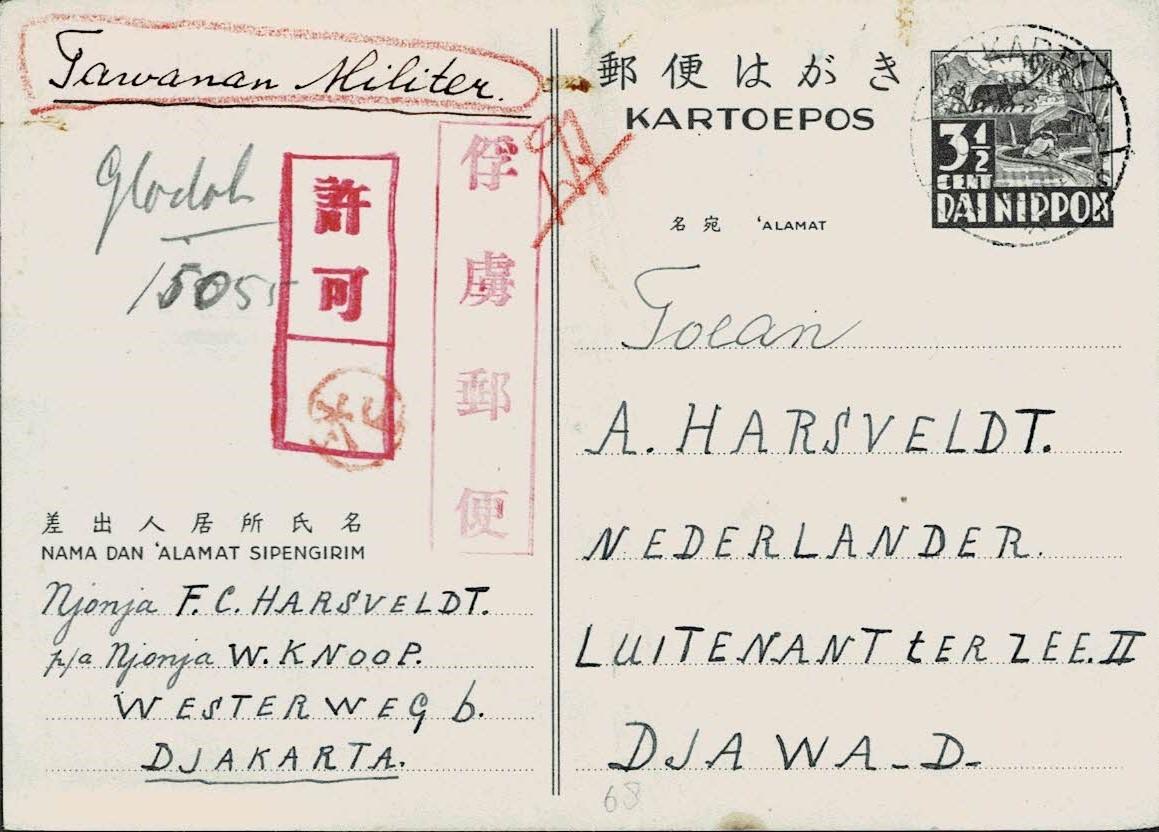 Tawanan Militer.
Glodok
15055
許可
俘虜郵便
差出人居所氏名
NAMA DAN 'ALAMAT SIPENGIRIM
Njonja F. C. HARSVELDT.
p/a Njonja W. KNOOP.
WESTERWEG 6.
DJAKARTA.
郵便はがき
KARTOEPOS
3½
CENT
DAI NIPPON
名宛 'ALAMAT
Toean
A. HARSVELDT.
NEDERLANDER.
LUITENANT ter ZEE. II
DJAWA-D-
68